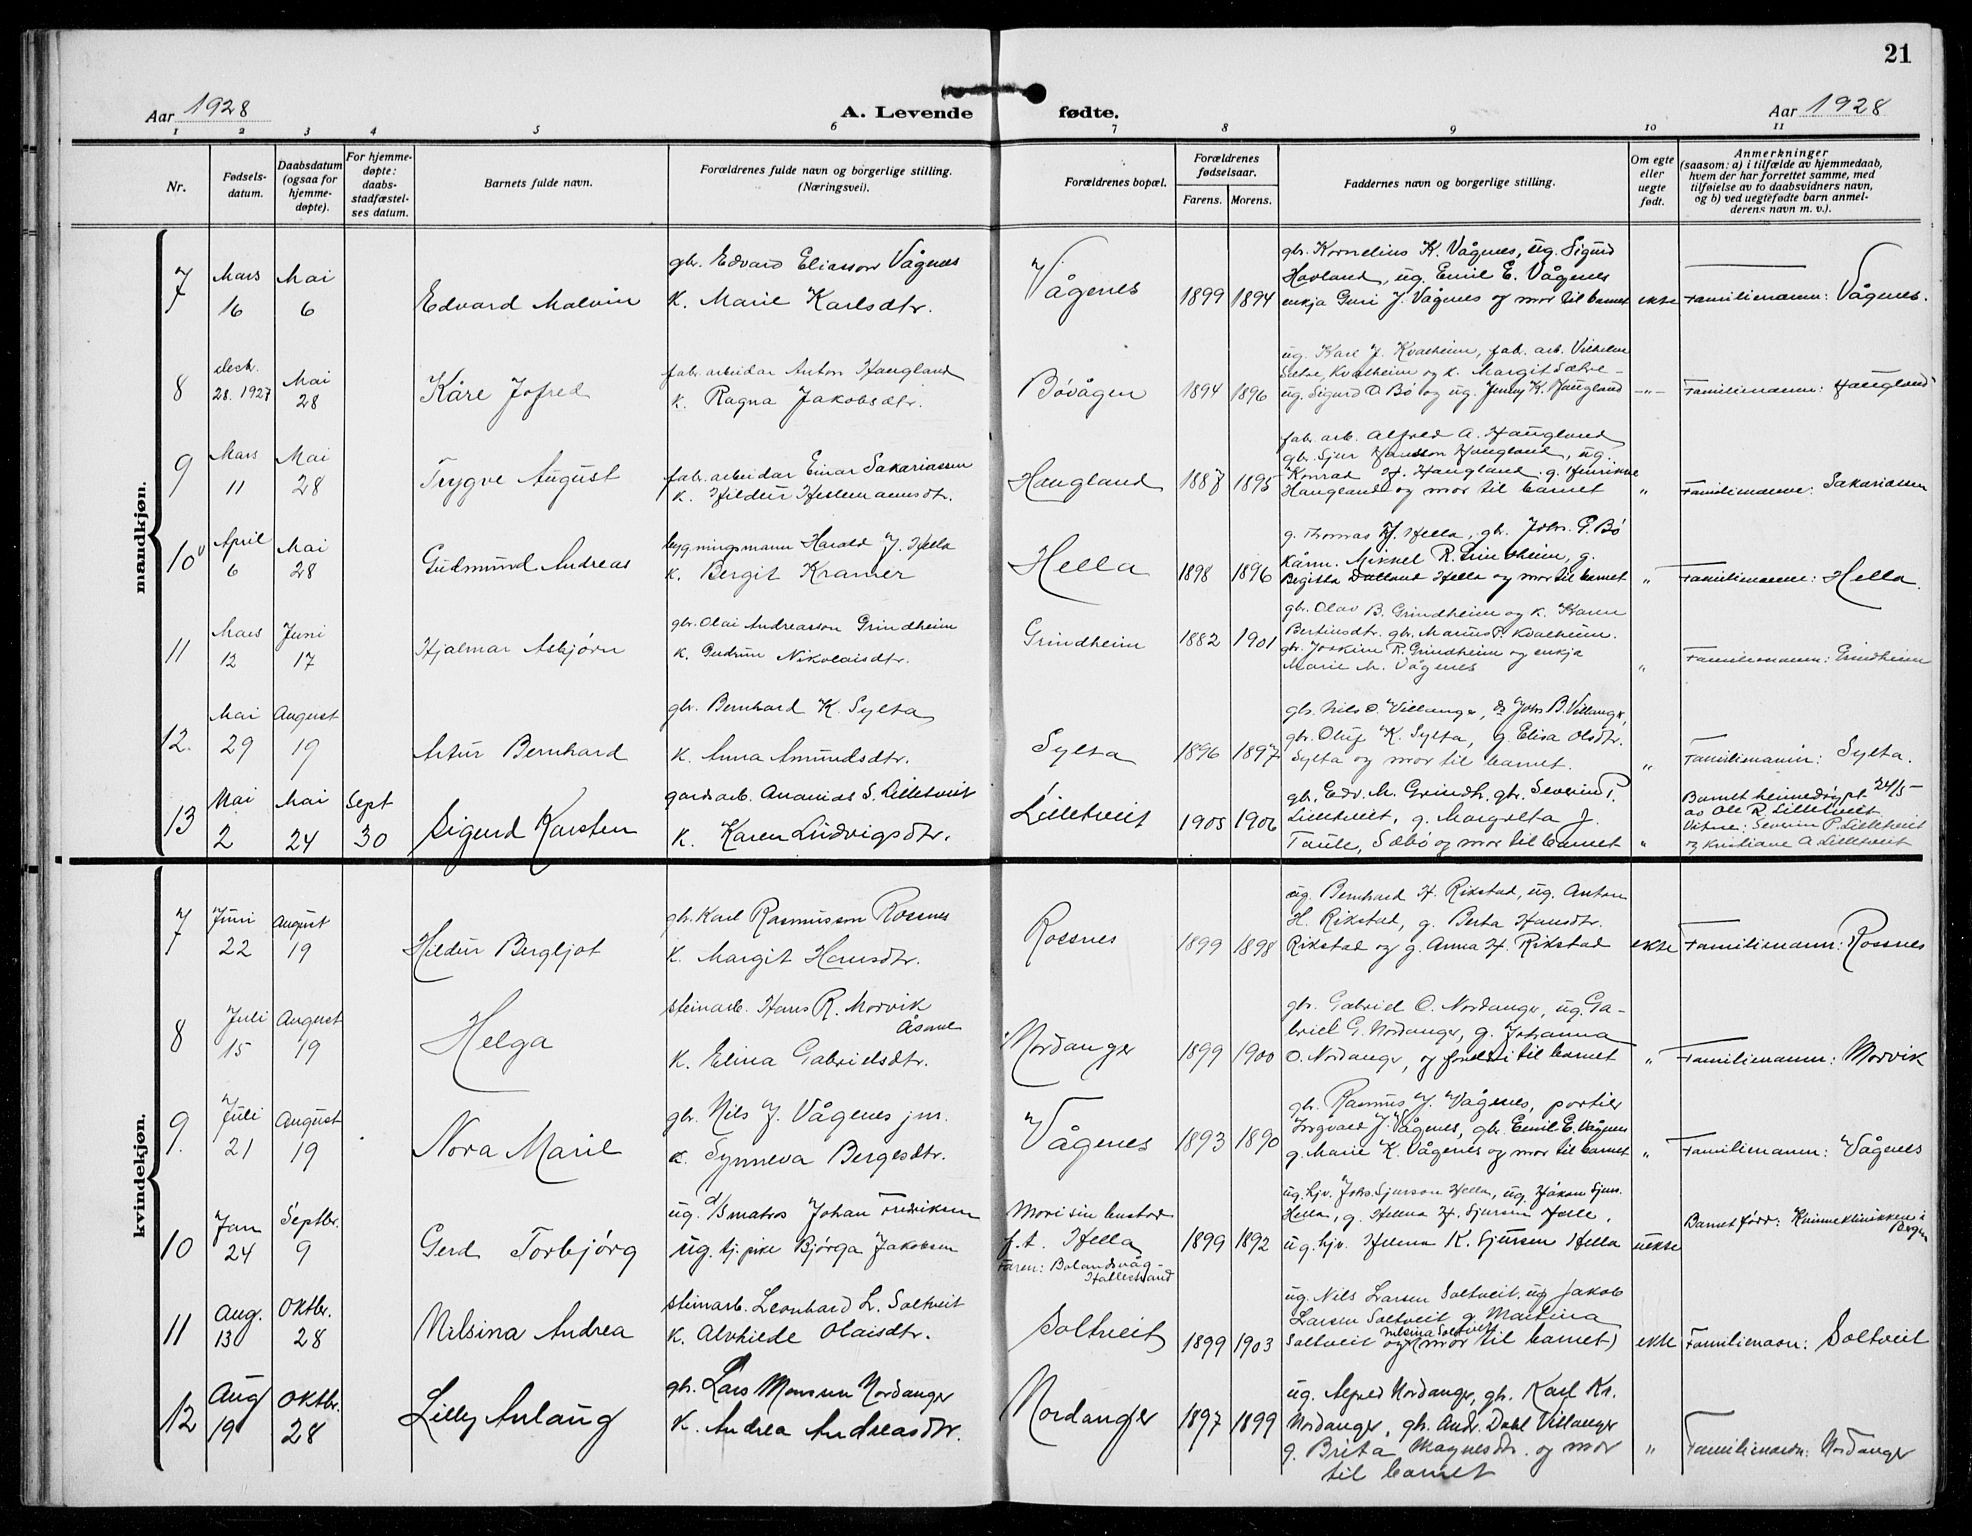 21
Aar 1928
A. Levende fødte.
Aar 1928
1 2 3 4 5 6 7 8 9 10 11
Nr.
Fødsels-
datum.
Daabsdatum
(ogsaa for
hjemme-
døpte).
For hjemme-
døpte:
daabs-
stadfæstel-
ses datum.
Barnets fulde navn.
Forældrenes fulde navn og borgerlige stilling.
(Næringsvei).
Forældrenes bopæl.
Forældrenes
fødselsaar.
Farens. Morens.
Faddernes navn og borgerlige stilling.
Om egte
eller
uegte
født.
Anmerkninger
(saasom: a) i tilfælde av hjemmedaab,
hvem der har forrettet samme, med
tilføielse av to daabsvidners navn,
og b) ved uegtefødte barn anmel-
derens navn m. v.).
mandkjøn.
7
Mars
16
Mai
6
Edvard Malvin
gbr. Edvard Eliasson Vågenes
K. Marie Karlsdtr.
Vågenes
1899 1894
gbr. Kornelius K. Vågenes, ug. Sigurd
Hovland, ug. Emil E. Vågenes
enkja Guri J. Vågenes og mor til barnet
ekte
Familienamn: Vågenes.
8
desb.
28. 1927
Mai
28
Kåre Jofred
fabr. arbeidar Anton Haugland
K. Ragna Jakobsdtr.
Bøvågen
1894 1896
ug. Karl J. Kvalheim, fab. arb. Vilhelm
Sætre, Kvalheim og k. Margit Sætre -
ug. Sigurd O. Bø og ug. Jenny K. Haugland
-"-
Familienamn: Haugland
9
Mars
11
Mai
28
Trygve August
fabr. arbeidar Einar Sakariassen
K. Hildur Hellemannsdtr.
Haugland
1887 1895
fabr. arb. Alfred A. Haugland
gbr. Sjur Hansson Haugland, ug.
Konrad H. Haugland. g. Henrikke
Haugland og mor til barnet
"
Familienamn: Sakariassen
10
April
6
Mai
28
Gudmund Andreas
bygningsmann Harald J. Hella
K. Bergit Kramer
Hella
1898 1896
g. Thomas Hj. Hella, gbr. Johs. G. Bø
Kårm. Mikkel R. Grindheim, g.
Begitta Dalland Hella og mor til barnet
"
Familienamn: Hella.
11
Mars
12
Juni
17
Hjalmar Asbjørn
gbr. Olai Andreasson Grindheim
K. Gudrun Nikolaisdtr.
Grindheim
1882 1901
gbr. Olav B. Grindheim og K. Karen
Bertinsdtr. gbr. Marius P. Kvalheim.
gbr. Joakim R. Grindheim og enkja
Marie M. Vågenes
"
Familienamn: Grindheim
12.
Mai
29
August
19
Artur Bernhard
gbr. Bernhard K. Sylta
K. Anna Amundsdtr.
Sylta
1896 1897
gbr. Nils O. Villanger, do Johs B. Villanger,
gbr. Oluf K. Sylta, g. Elisa Olsdtr.
Sylta og mor til barnet.
"
Familienamn: Sylta.
13
Mai
2
Mai
24
Sept
30
Sigurd Karsten
gardsarb. Ananias S. Lilletveit
K. Karen Ludvigsdtr.
Lilletveit
1905 1906
gbr. Edv. M. Grindh. gbr. Severin P.
Lilletveit, g. Margreta J.
Taule, Sæbø og mor til barnet
"
Barnet heimedøypt 24/5 -
av Ole R. Lilletveit
Vitne: Severin P. Lilletveit
og Kristiane A Lilletveit
kvindekjøn.
7
Juni
22
August
19
Hildur Bergljot
gbr. Karl Rasmussen Rossnes
K. Margit Hansdtr.
Rossnes
1899 1898
ug. Bernhard H. Rikstad, ug. Anton
H. Rikstad, g. Berta Hansdtr.
Rikstad og g. Anna H. Rikstad
ekte
Familienamn: Rossnes
8
Juli
15
August
19
Helga
steinarb. Hans R. Morvik
Åsane
K. Elina Gabrielsdtr.
Nordanger
1899 1900
gbr. Gabriel O. Nordanger, ug. Ga-
briel G. Nordanger, g. Johanna
O. Nordanger, og foreldri til barnet
"
Familienamn: Morvik
9.
Juli
21
August
19
Nora Marie
gbr. Nils J. Vågenes jnr.
K. Synneva Bergesdtr.
Vågenes
1893 1890
gbr. Rasmus J. Vågenes, portier
Ingvald J. Vågenes, gbr. Emil E. Vågenes
g. Marie K. Vågenes og mor til barnet
"
Familienamn: Vågenes
10
Jan
24
Septbr.
9
Gerd Torbjørg
ug. d/s matros Johan Fredriksen
ug. tj. pike Bjørga Jakobsen
Mori sin bustad
f. t. Hella
Faren: Bolandsvåg -
Hallestrand
1899 1892
ug. hjv. Johs. Sjurson Hella, ug. Håkon Sjurs.
Hella, g. Helena H. Sjursen Hella,
ug. hjv. Helena K. Sjursen Hella
uekte
Barnet født: Kvinneklinikken i
Bergen
11
Aug.
13
Oktbr.
28
Nilsina Andrea
steinarb. Leonhard L. Soltveit
K. Alvhilde Olaisdtr.
Soltveit
1899 1903
ug. Nils Larsen Soltveit, ug. Jakob
Larsen Soltveit g. Martina
Nilsina Soltveit
Soltveit og (mor til barnet)
ekte
Familienavn: Soltveit
12
Aug
19
Oktbr.
28
Lilly Anlaug
gbr. Lars Monsen Nordanger
K. Andrea Andreasdtr.
Nordanger
1897 1899
ug. Alfred Nordanger, gbr. Karl Kr.
Nordanger, gbr. Andr. Dahl Villanger
g. Brita Magnesdtr. og mor
til barnet
"
Familienavn: Nordanger